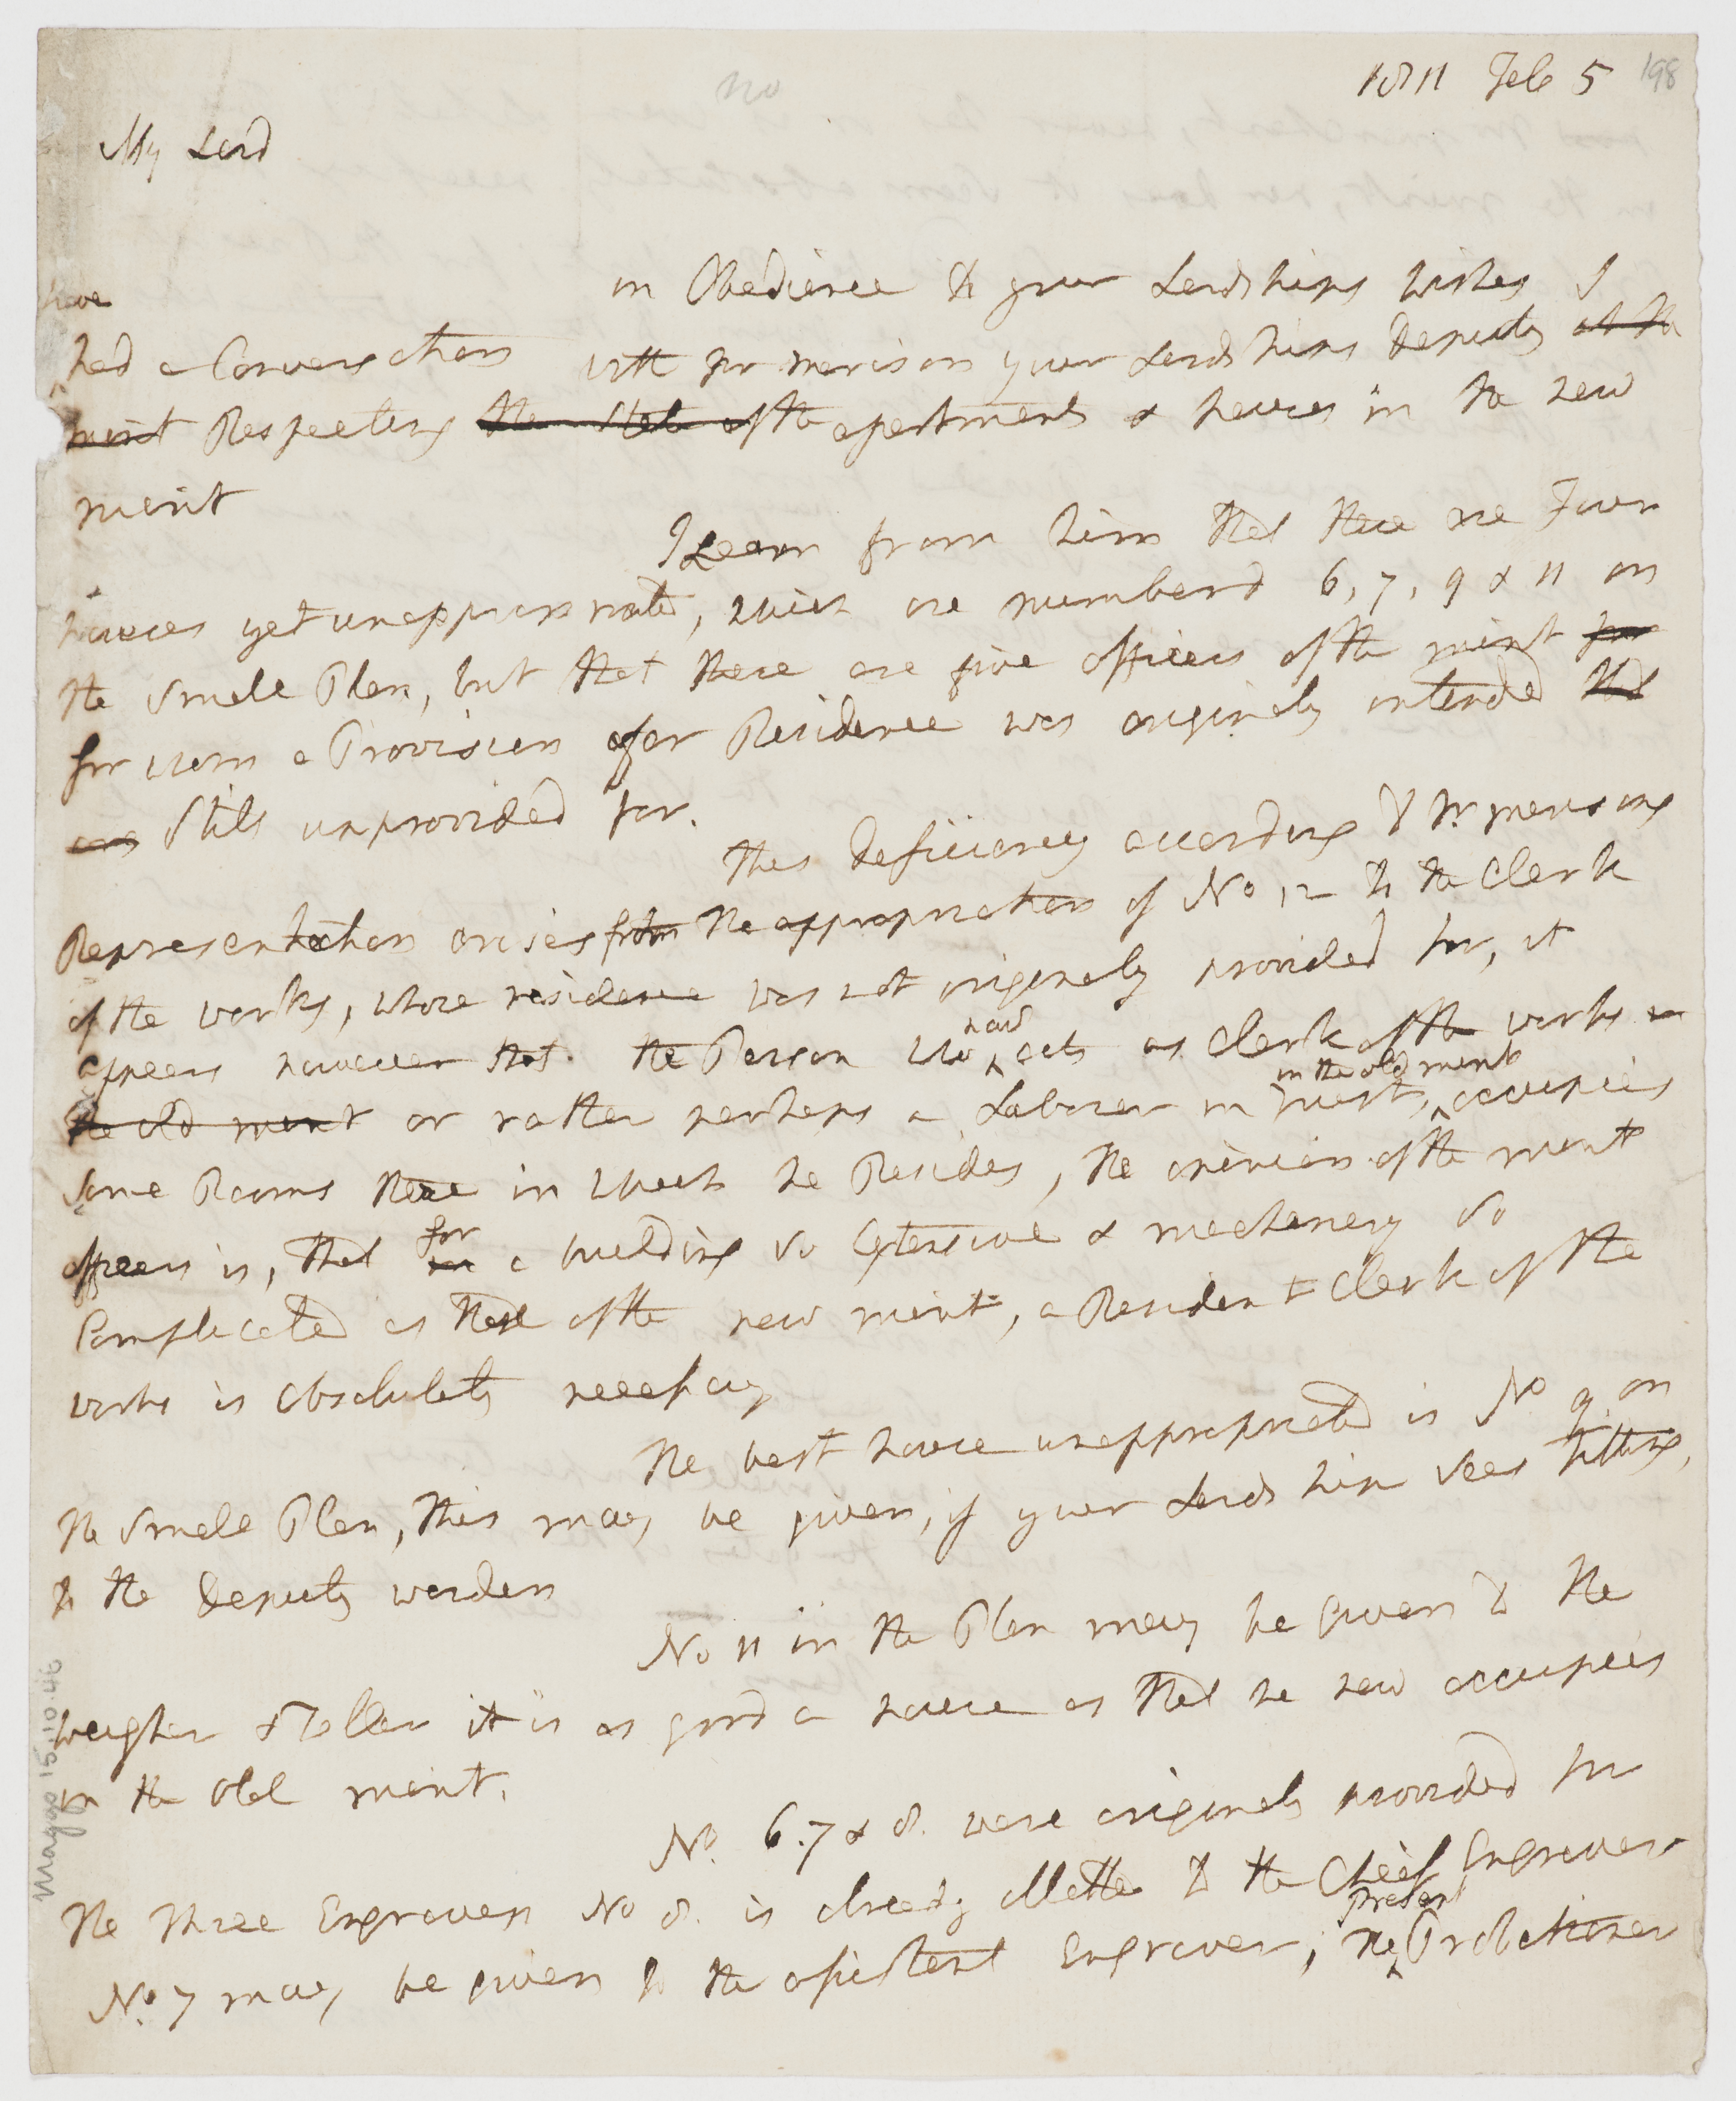 1811 Feb 5 198
no
My Lord
in Obedience to your Lordships wishes I
have
had a Conversation with Mr Morrison your Lordships Deputy at the
mint Respecting the State of the apartments & houses in the new
mint
I Learn from him that there are Four
houses yet unappropriated, which are numberd 6, 7, 9 & 11 on
the Small Plan, but that there are five officers of the mint for
for whom a Provision for Residence was originaly intended that
are Still unprovided for.
This deficiency according to Mr. Morrisons
Representation arises from the appropriation of No 12 to the Clerk
of the works, whose residence was not originaly provided for, it
appears however that the Person who now acts as Clerk of the works in
the old mint or rather perhaps a Laborer in trust, in the old mint occupies
Some Rooms there in which he Resides, the opinion of the mint
officers is, that in for a building so Extensive & mechanery so
Complicated as that of the new mint, a Resident Clerk of the
works is absolutely necessary
the best house unappropriated is No 9. on
the Small Plan, this may be given, if your Lordship sees fitting,
to the Deputy warden
No 11 in the Plan may be given to the
weigher & Teller it is as good a house as that he now occupies
in the old mint.
No. 6. 7 & 8. were originaly provided for
the three Engravers No 8. is already allotted to the Cheif Engraver
No. 7 may be given to the assistant Engraver, the present Probationer
Margogo 1510.47.6